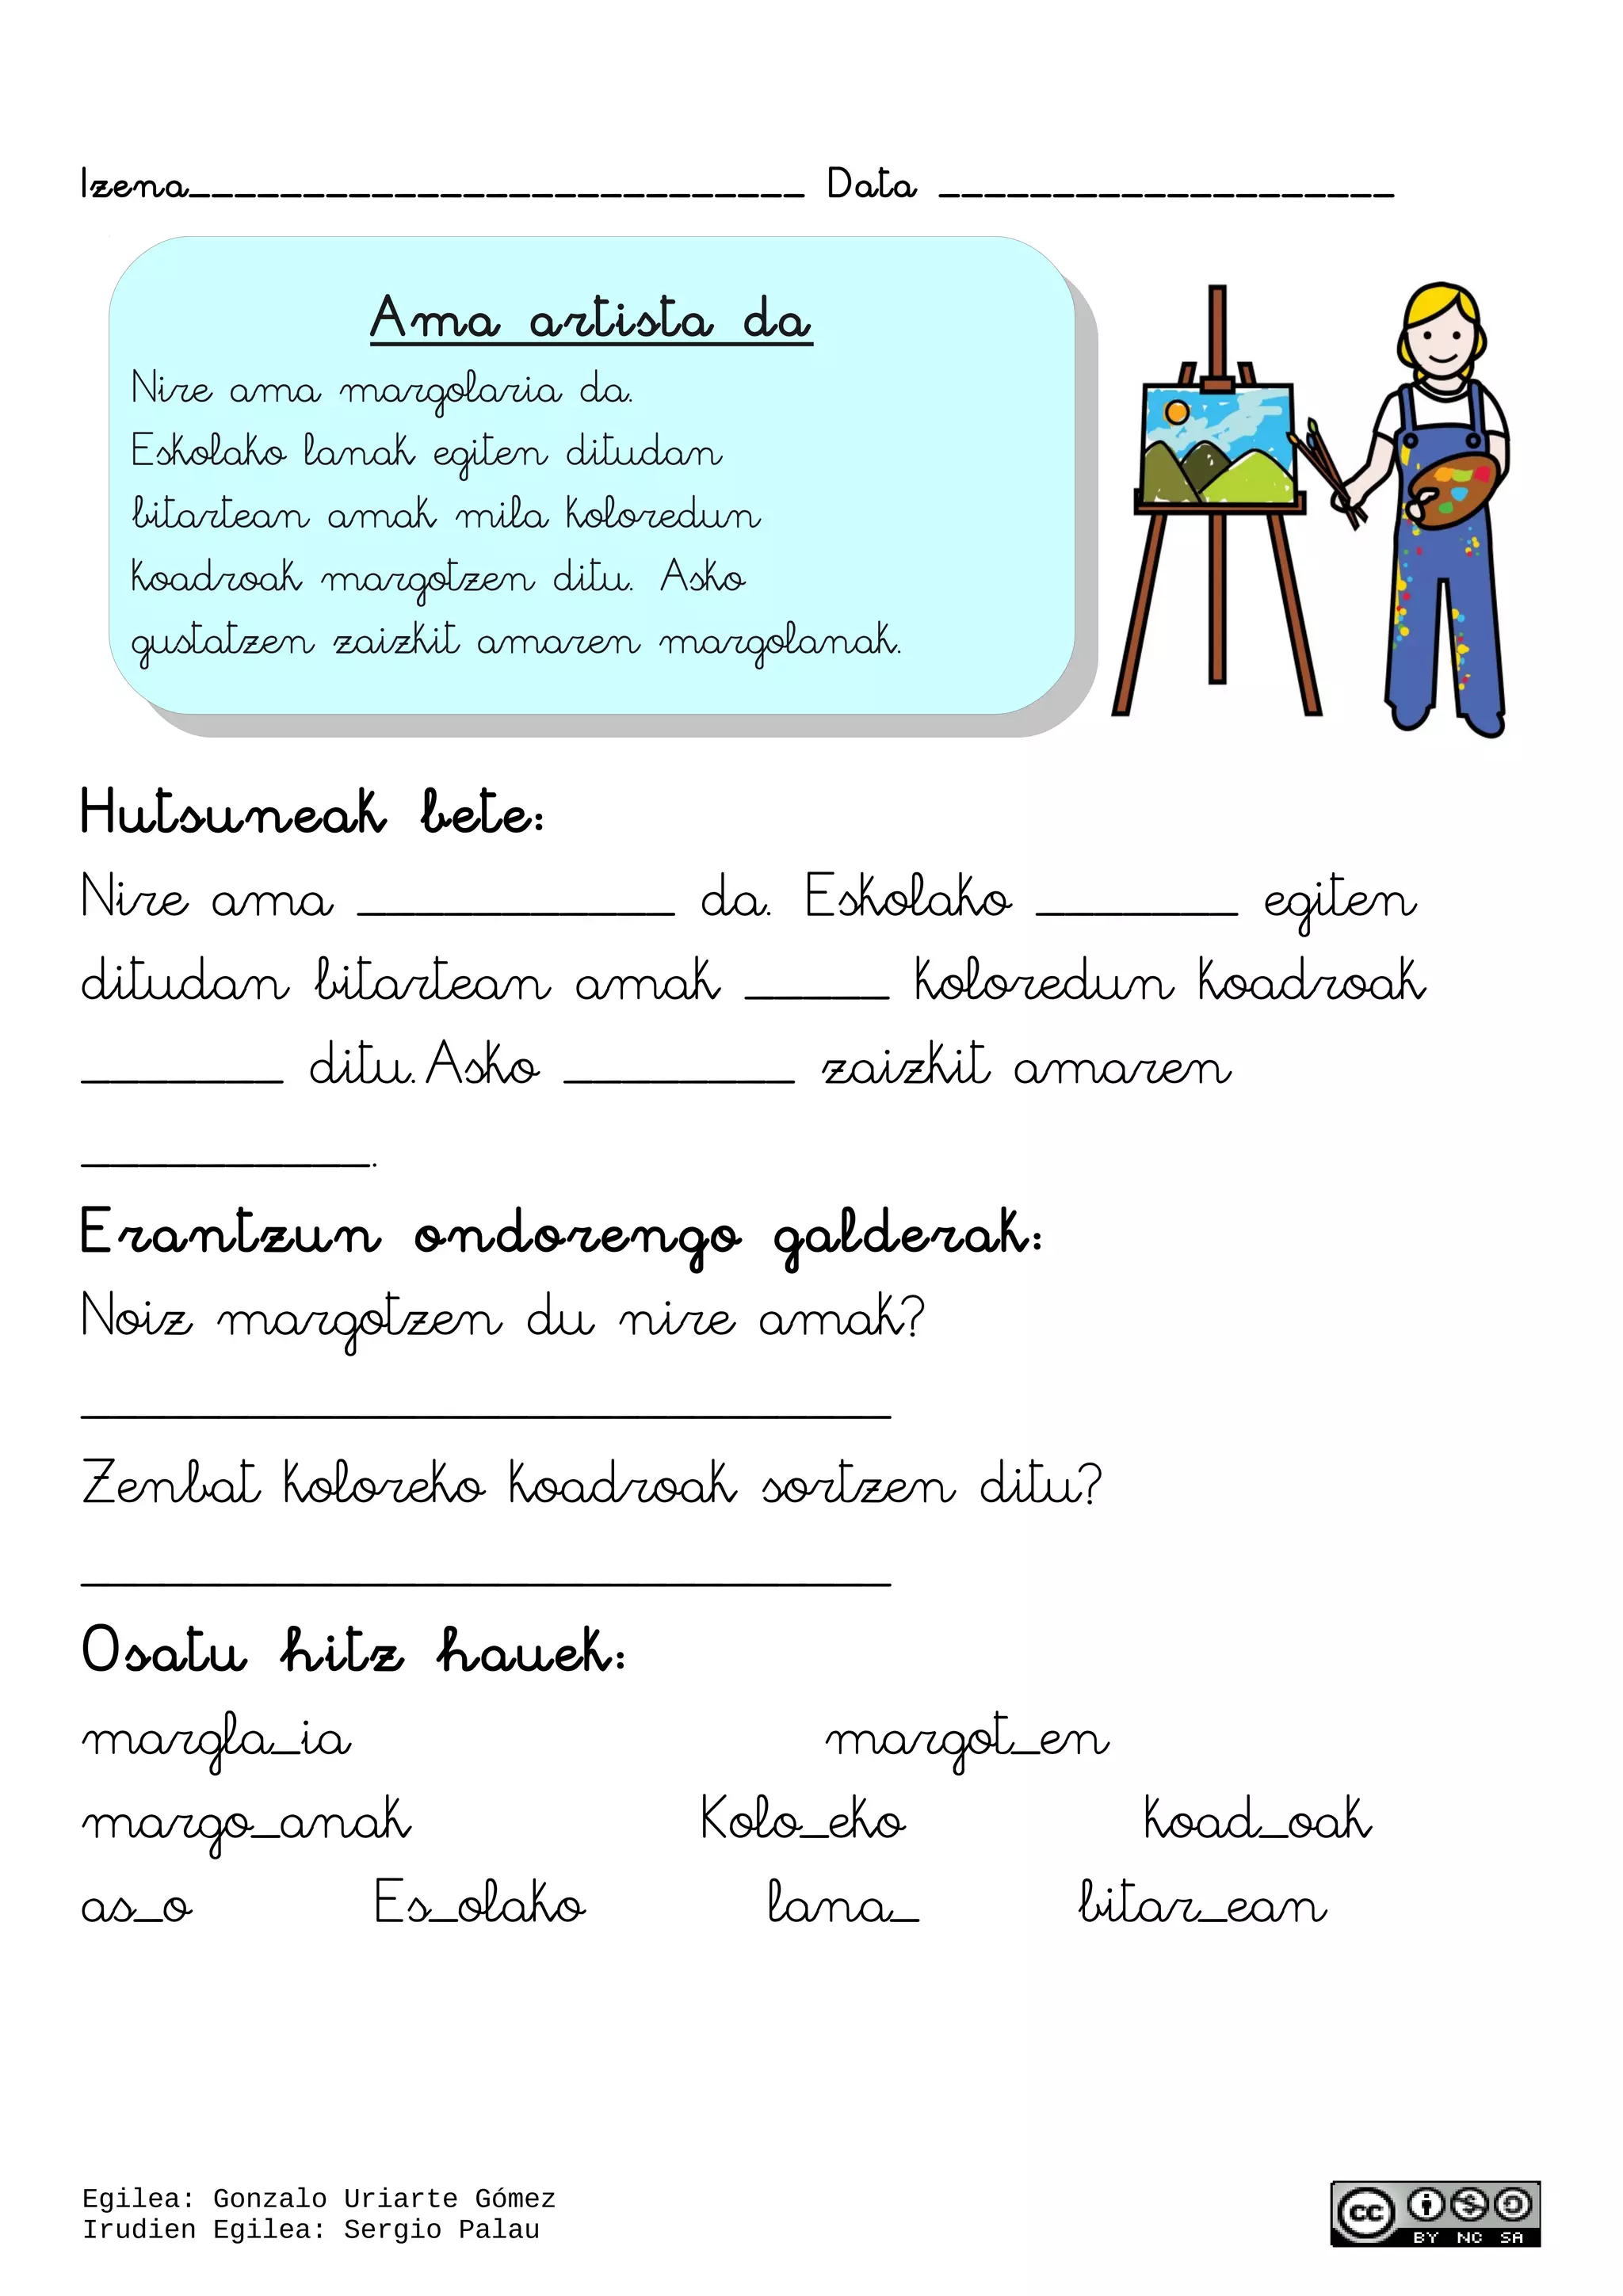 Izena___________________________ Data ____________________
Ama artista da
Nire ama margolaria da.
Eskolako lanak egiten ditudan
bitartean amak mila koloredun
koadroak margotzen ditu. Asko
gustatzen zaizkit amaren margolanak.
Hutsuneak bete:
Nire ama ___________ da. Eskolako _______ egiten
ditudan bitartean amak _____ koloredun koadroak
_______ ditu.Asko ________ zaizkit amaren
__________.
Erantzun ondorengo galderak:
Noiz margotzen du nire amak?
____________________________
Zenbat koloreko koadroak sortzen ditu?
____________________________
Osatu hitz hauek:
margla_ia margot_en
margo_anak Kolo_eko koad_oak
as_o Es_olako lana_ bitar_ean
Egilea: Gonzalo Uriarte Gómez
Irudien Egilea: Sergio Palau
cc BY NC SA